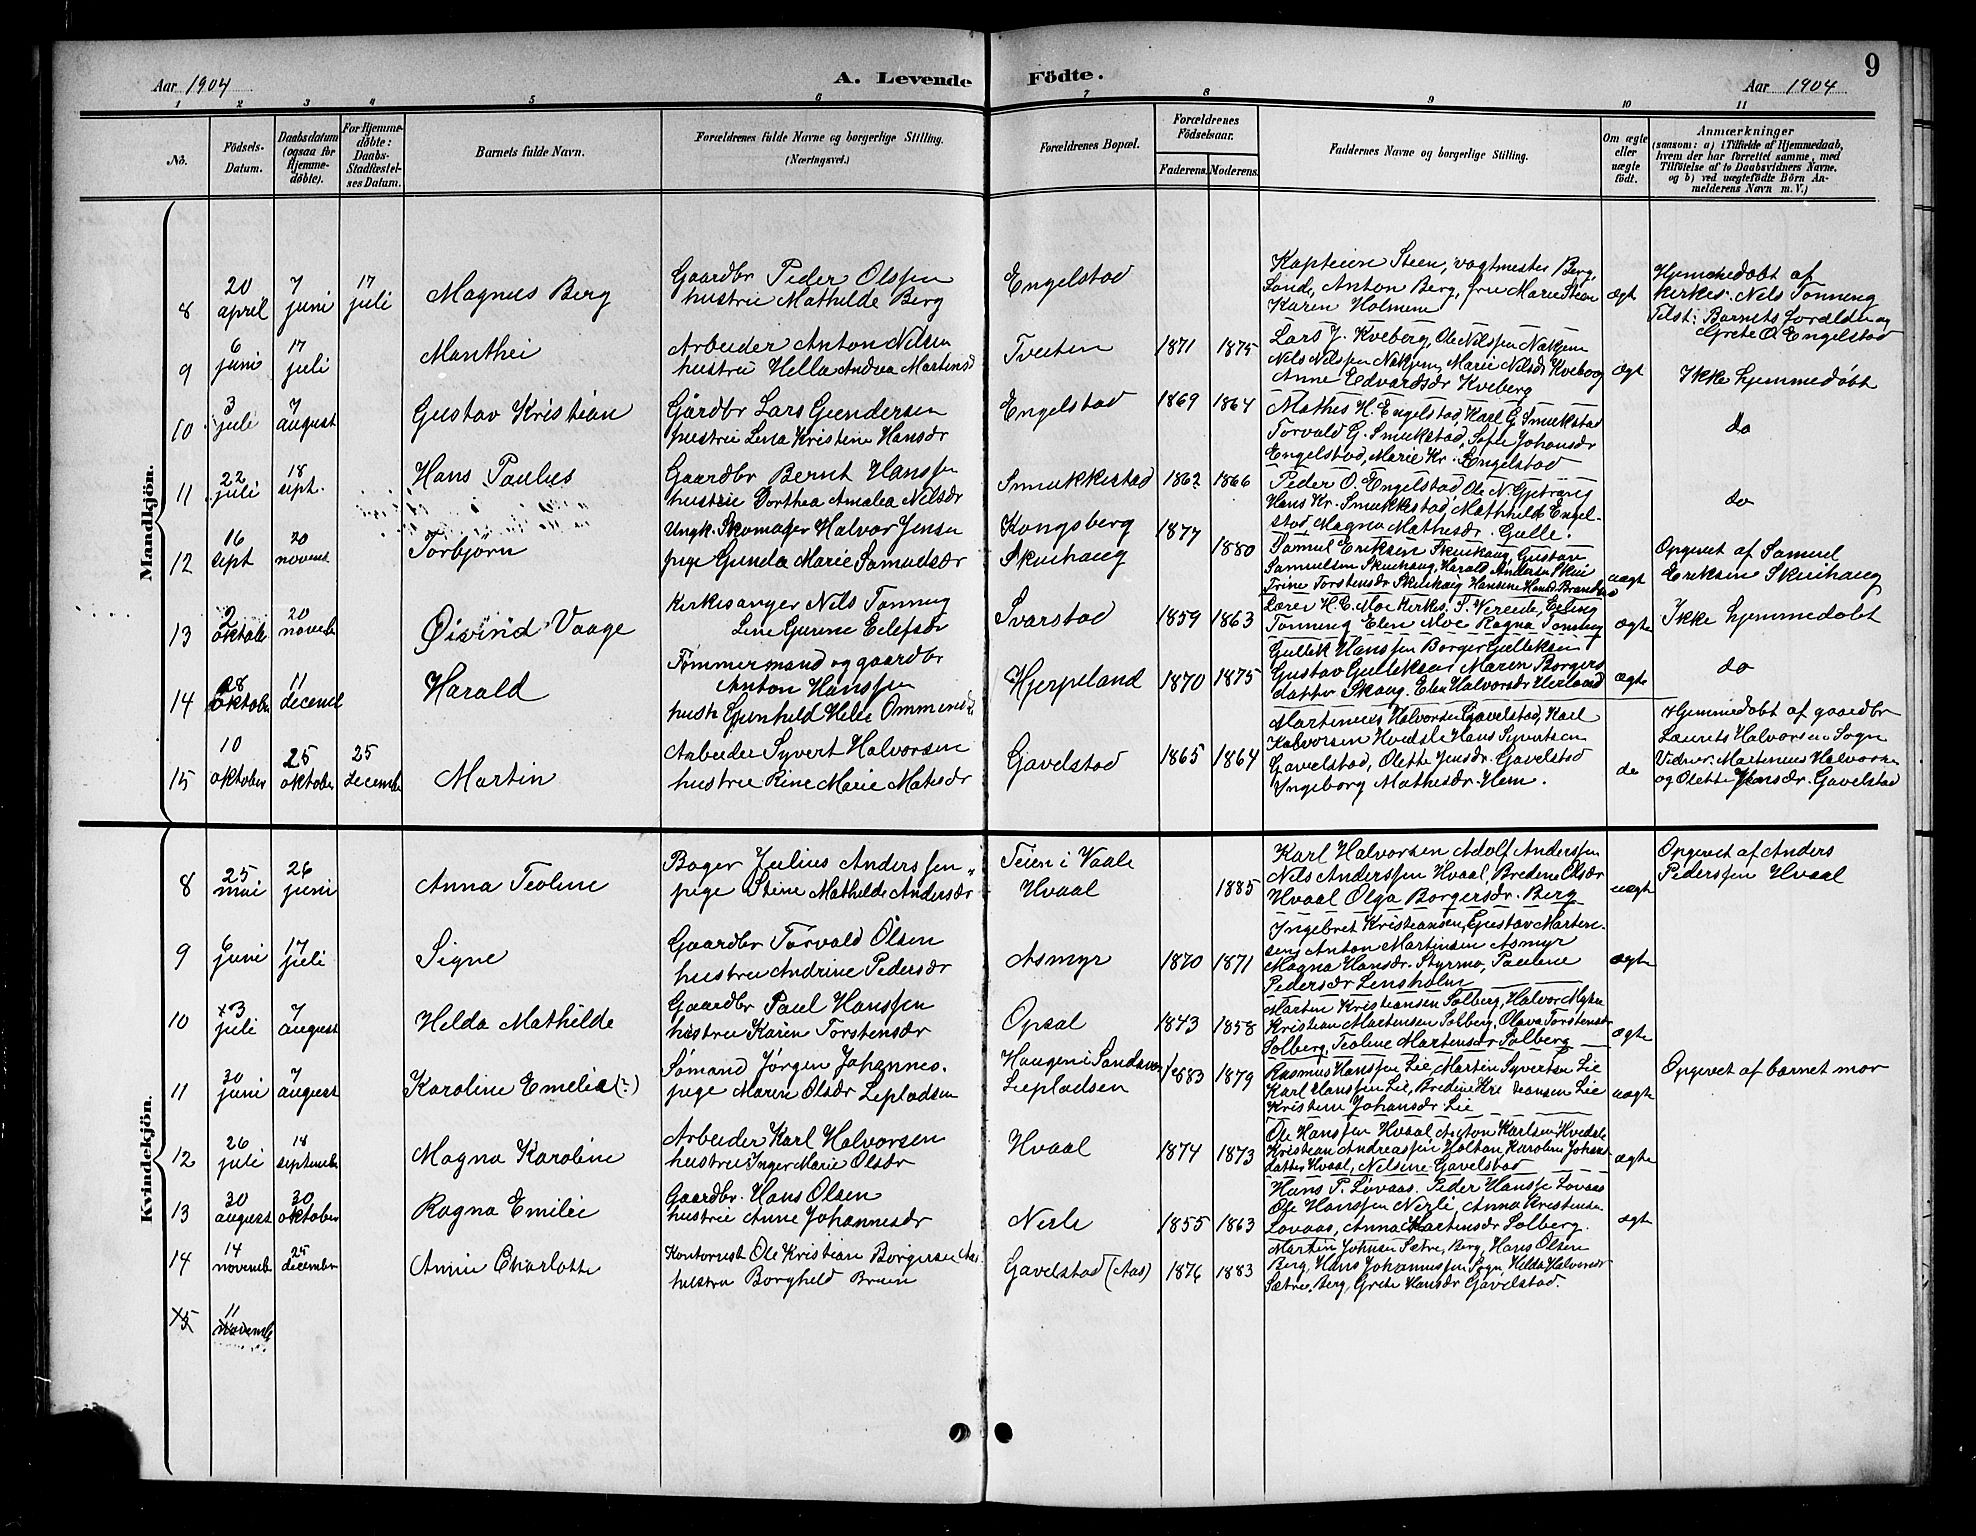 Aar 1904
A. Levende
Födte.
Aar 1904
9
1 2 3 4 5 6 7 8 9 10 11
No.
Födsels-
Datum.
Daabsdatum
(ogsaa for
Hjemme-
døbte).
For Hjemme-
døbte:
Daabs-
Stadfæstel-
ses Datum.
Barnets fulde Navn.
Forældrenes fulde Navne og borgerlige Stilling.
(Næringsvei.)
Forældrenes Bopæl.
Forældrenes
Födselsaar.
Faderens.
Moderens.
Faddernes Navne og borgerlige Stilling.
Om ægte
eller
uægte
födt.
Anmærkninger
(saasom: a) i Tilfælde af Hjemmedaab,
hvem der har forrettet samme, med
Tilföielse af to Daabsvidners Navne.
og b) ved uægtefödte Börn An-
melderens Navn m. V.)
Mandkjön.
8
20
april
7
juni
17
juli
Magnus Berg
Gaardbr Peder Olssen
hustru Mathilde Berg
Engelstad
Kaptein Steen, vagtmester Berg,
Anton Berg, fru Marie Steen
Karen Holmen
ægt
Hjemmedøbt af
kirkes. Nils Tonning
Tilst: Barnets forældre og
Grete O Engelstad
9
6
juni
17
juli
Manthei
Arbeider Anton Nilsen
hustru Hella Andrea Martensd
Tveten
1871
1875
Lars J. Kveberg, Ole Nilssen
Nils Nilssen Marie Nilsdr Kveberg
Anne Edvardsdr Kveberg
ægt
Ikke hjemmedøbt
10
3
juli
7
august
Gustav Kristian
Gårdbr Lars Gundersen
hustru Lina Kristine Hansdr
Engelstad
1869
1864
Mathis H. Engelstad, Karl G Smukstad
Torvald G. Smukstad, Sofie Johansdr
Engelstad, Marie Kr. Engelstad
do
11
22
juli
18
sept.
Hans Paulus
Gaardbr Bernt Hanssen
hustru Dorthea Amalea Nilsdr
Smukkestad
1862
1866
Peder O. Engelstad, Ole N.
Hans Kr. Smukkestad, Mathilde Engel-
stad, Magna Mathisdr. Gulle.
do
12
16
sept
20
novem
Torbjörn
Ungk. Skomager Halvor Jensen
pige Gunda Marie Samuelsdr
Kongsberg
Skuihaug
1877
1880
Samuel Eriksen Skuihaug, Gustav
Samuelsen Skuihaug, Harald Andersen Skui
Trine Torstensdr Skuihaug Hansine
uægte
Opgivet af Samuel
Eriksen Skuihaug
13
2
oktober
20
novembr
Øivind Vaage
Kirkesanger Nils Tonning
Line Gurine Eilefsdr
Svarstad
1859
1863
Lærer H. E. Moe
Tonning Elen Moe Ragna Tonning
ægte
Ikke hjemmedøbt
14
28
oktober
11
decemb
Harald
Tømmermand og gaardbr
Anton Hanssen
hustr Gunhild Helle
Hjerpeland
1870
1875
Gullik Hanssen Borger Gulliksen
Gustav Gulliksen Maren Borgers
datter Skaug. Elen Halvorsdr
ægte
do
15
10
oktober
25
oktober
25
decembr
Martin
Arbeider Syvert Halvorsen
hustru Rine Marie Matisdr
Gavelstad
1865
1864
Martinius Halvorsen Gavelstad, Karl
Halvorsen Hvedsle Hans Syvertsen
Gavelstad, Olette Jensdr. Gavelstad
Ingeborg Mathisdr. Hem.
do
Hjemmedøbt af gaardbr
Laurits Halvorsen Sogn
Vidner: Martinius Halvorsen
og Olette Jensdr. Gavelstad
Kvindekjön.
8
25
mai
26
juni
Anna Teoline
Bager Julius Anderssen,
pige Stine Mathilde Andersdr
Teien i Vaale
Hvaal
1885
Karl Halvorsen Adolf Anderssen
Nils Anderssen Hvaal, Bredine Olsdr
Hvaal Olga Borgersdr. Berg
uægte
Opgivet af Anders
Pederssen Hvaal
9
6
juni
17
juli
Signe
Gaardbr Torvald Olsen
hustru Andrine Pedersdr
Asmyr
1870
1871
Ingebret Kristiansen, Gustav Martin-
sen, Anton Martinsen Asmyr
Magna Hansdr. Styrmo, Pauline
Pedersdr Linsholm
ægte
10
3
juli
7
august
Helda Mathilde
Gaardbr Paul Hanssen
hustru Karen Torstensdr
Opsal
1843
1858
Martin Kristiansen Solberg, Halvor
Kristian Martinsen Solberg, Olava Torstensdr
Solberg, Teoline Martinsdr Solberg
ægte
11
30
juni
7
august
Karoline Emelie (-)
Sømand Jørgen Johannes.
pige Maren Olsdr Liepladsen
Haugen i Sandsvær
Liepladsen
1883
1879
Rasmus Hanssen Lie Martin Syvertsen Lie
Karl Hanssen Lie, Bredine Kristiansen Lie
Kristine Johansdr. Lie
uægte
Opgivet af barnet mor
12
26
juli
18
septembr
Magna Karoline
Arbeider Karl Halvorsen
hustru Inger Marie Olsdr
Hvaal
1874
1873
Ole Hanssen Hvaal, Anton Karlsen Hvedsle
Kristian Andreassen Holtan, Karoline Johans
datter Hvaal, Nelsine Gavelstad
ægte
13
30
august
30
oktober
Ragna Emilie
Gaardbr. Hans Olsen
hustru Anne Johannesdr
Nerli
1855
1863
Hans P. Lövaas. Peder Hansse Lovaas
Ole Hanssen Nerli, Anna Kristensen
Lovaas, Anna Martinsdr Solberg.
ægt
14
14
novemb
25
decembr
Anni Charlotte
Kontorist Ole Kristian Borgersen Aas
hustru Borghild Bruun
Gavelstad (Aas)
1876
1883
Martin Johnsen Sætre, Berg, Hans Olsen
Berg, Hans Johannessen Sogn, Helda Halvorsdr
Sætre, Berg, Grete Hansdr Gavelstad.
15
11
novemb